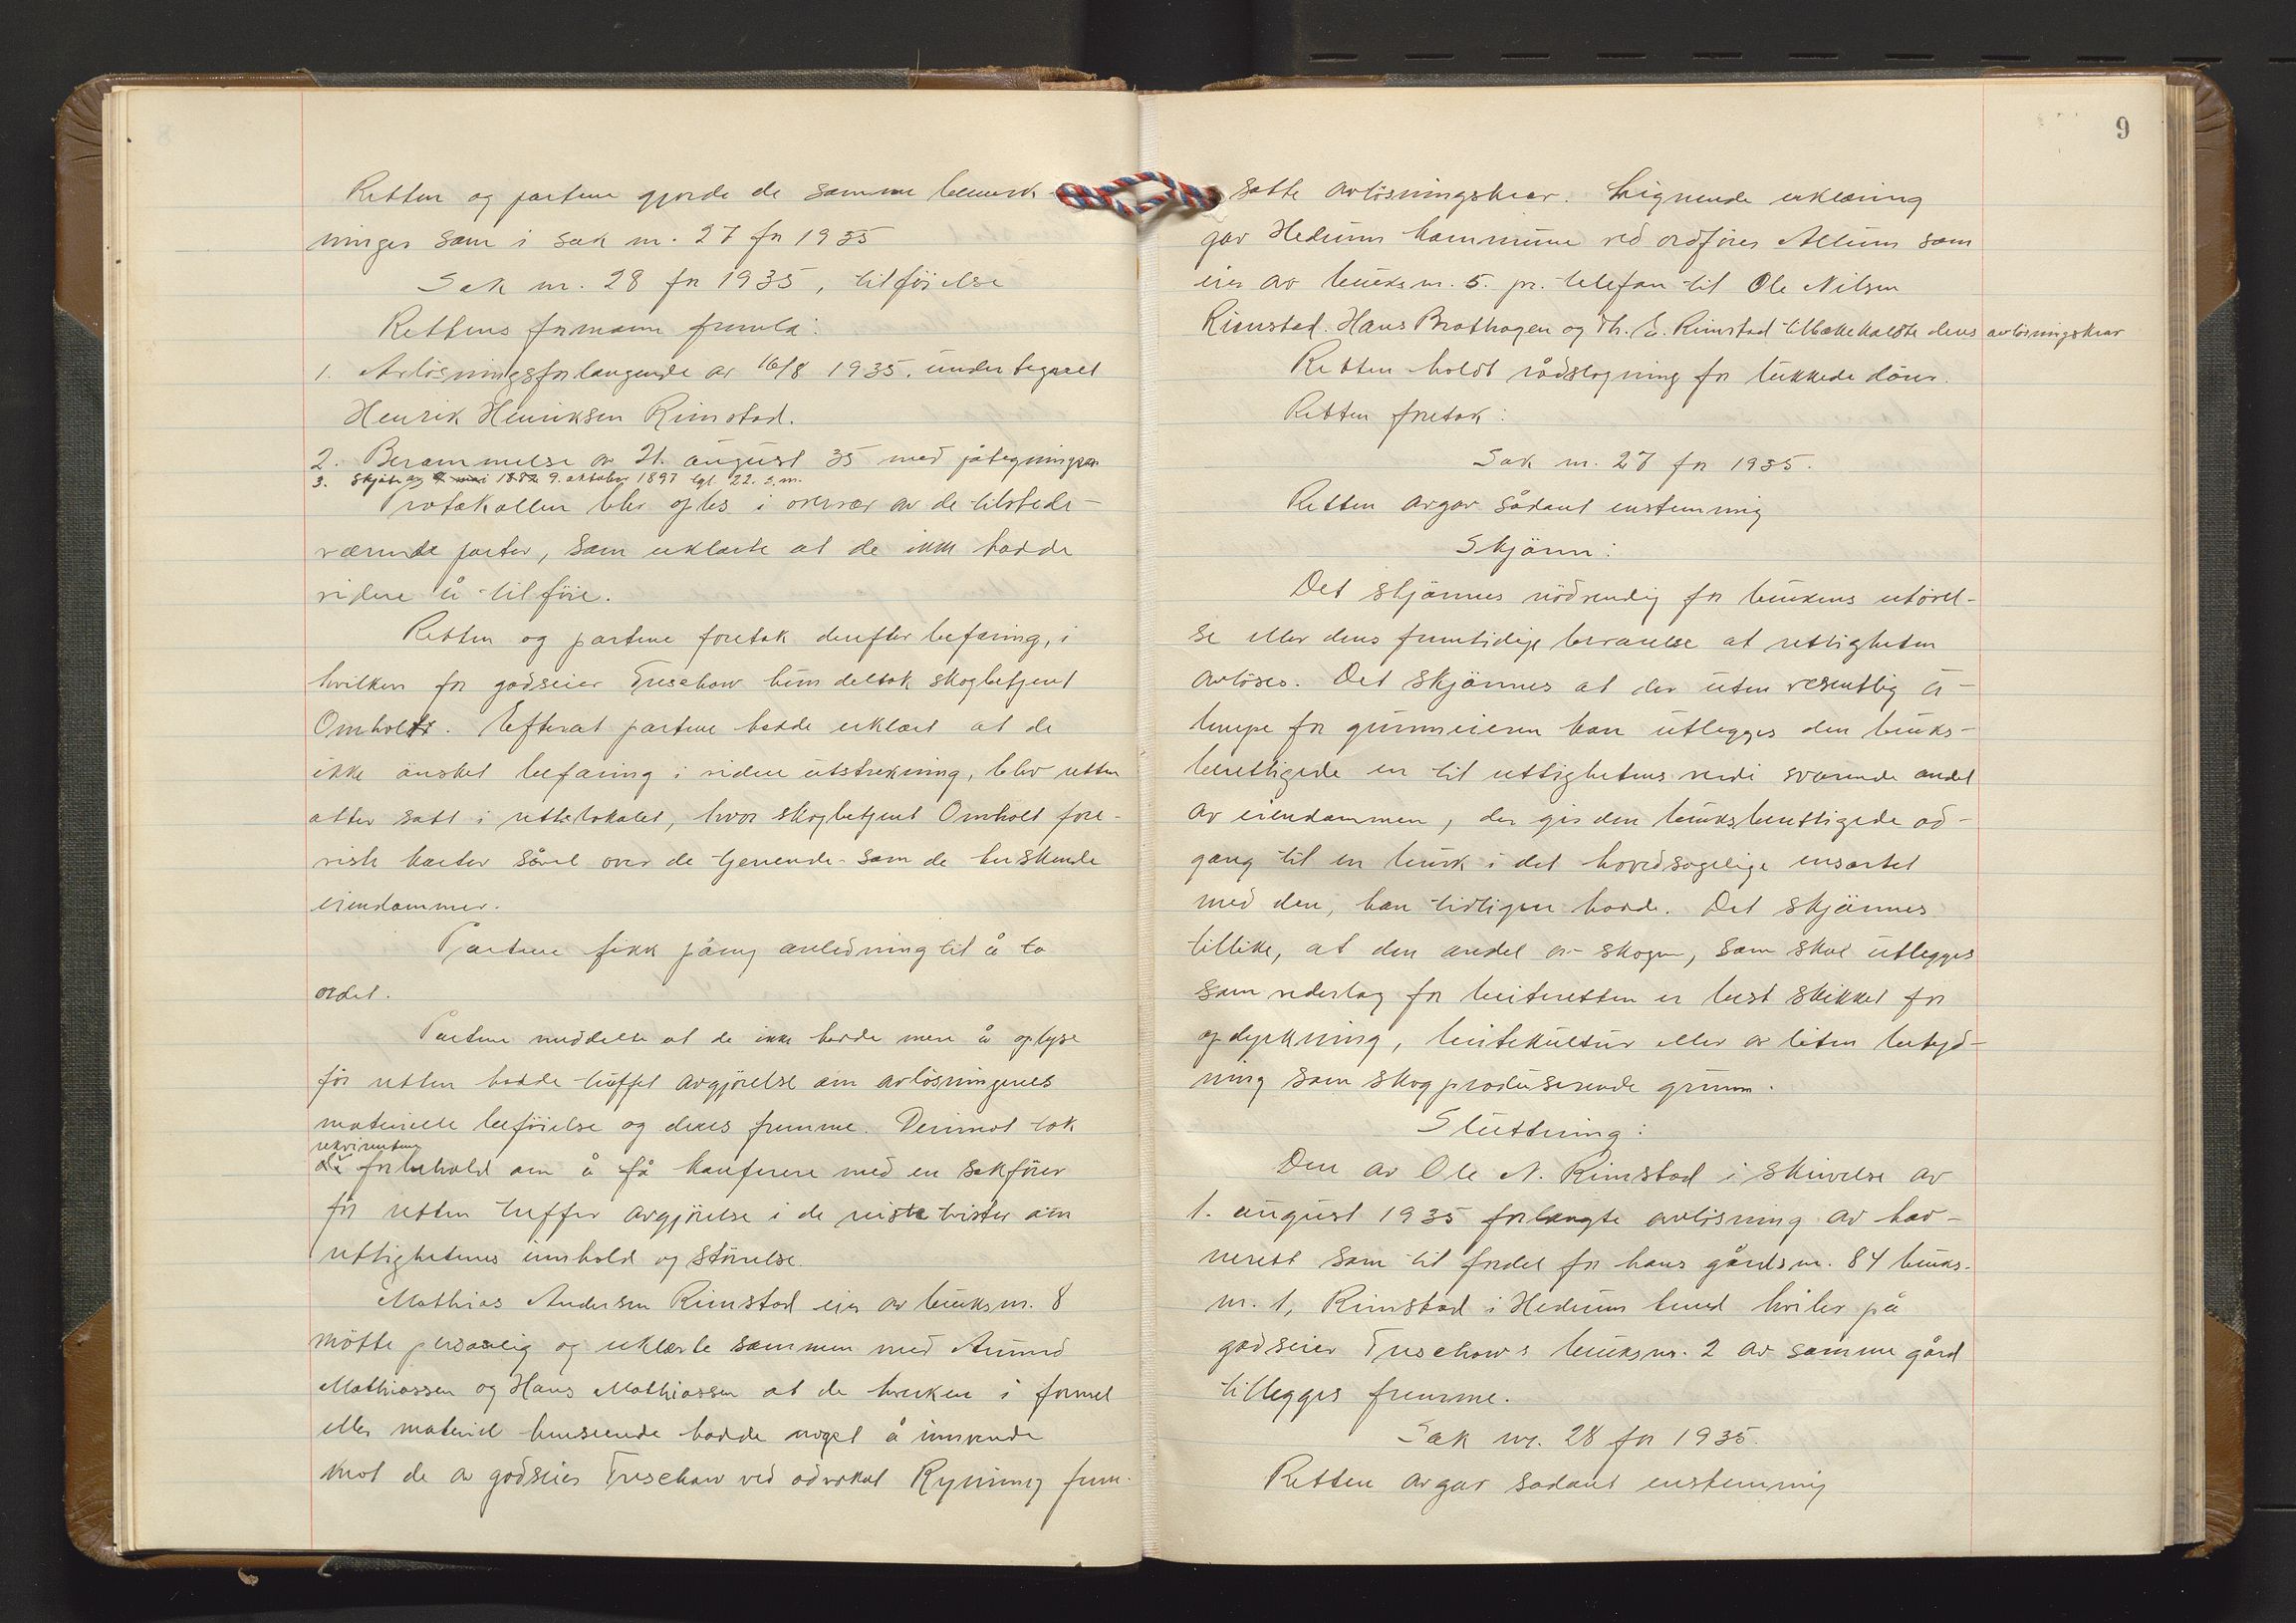 Retten og partene gjorde de samme bemerk-
ninger som i sak nr. 27 for 1935
Sak nr. 28 for 1935, tilföielse
Rettens formann fremla:
1. Avlösningsforlangende av 16/8 1935, undertegnet
Henrik Henriksen Rimstad.
2. Berammelse av 21. august 35 med påtegninger
3. Skjöte av 9. oktober 1897 tgl. 22. s.m.
Protokollen blev oples i overvær av de tilstede-
værende parter, som erklærte at de ikke hadde
videre å tilföie.
Retten og partene foretok derefter befaring, i
hvilken for godseier Treschow kun deltok skogbetjent
Omholt. Efterat partene hadde erklært at de
ikke önsket befaring i videre utstrekning, blev retten
atter satt i rettslokalet, hvor skogbetjent Omholt fore-
viste karter såvel over de tjenende som de herskende
eiendommer.
Partene fikk påny anledning til å ta
ordet.
Partene meddelte at de ikke hadde mere å oplyse
för retten hadde truffet avgjörelse om avlösningenes
materielle beföielse og deres fremme. Derimot tok
rekvirentene
de forbehold om å få konferere med en sakförer
för retten treffer avgjörelse i de reiste tvister om
rettighetenes innhold og störrelse.
Mathias Andersen Rimstad eier av bruksnr. 8
mötte personlig og erklærte sammen med Amund
Mathiassen og Hans Mathiassen at de hverken i formel
eller materiel henseende hadde noget å innvende
mot de av godseier Treschow ved advokat Ryning frem-
9
satte avlösningskrav. Lignende erklæring
gav Hedrum kommune ved ordförer Allum som
eier av bruksnr. 5. pr. telefon til Ole Nilsen
Rimstad. Hans Brathagen og Th. E. Rimstad tilbakekaldte deres avlösningskrav
Retten holdt rådslagning for lukkede dörer.
Retten foretok:
Sak nr. 27 for 1935.
Retten avgav sådant enstemmig
Skjönn:
Det skjönnes nödvendig for brukens utövel-
se eller dens fremtidige bevarelse at rettigheten
avlöses. Det skjönnes at der uten vesentlig u-
lempe for grunneieren kan utlegges den bruks-
berettigede en til rettighetens verdi svarende andel
av eiendommen, der gir den bruksberettigede ad-
gang til en bruk i det hovedsagelige ensartet
med den, han tidligere hadde. Det skjönnes
tillike, at den andel av skogen, som skal utlegges
som vederlag for beiteretten er best skikket for
opdyrkning, beitekultur eller av liten betyd-
ning som skogproduserende grunn.
Slutning:
Den av Ole N. Rimstad i skrivelse av
1. august 1935 forlangte avlösning av hav-
nerett som til fordel for hans gårdsnr. 84 bruks-
nr. 1, Rimstad i Hedrum herred hviler på
godseier Treschow's bruksnr. 2 av samme gård
tillegges fremme.
Sak nr. 28 for 1935.
Retten avgav sådant enstemmig